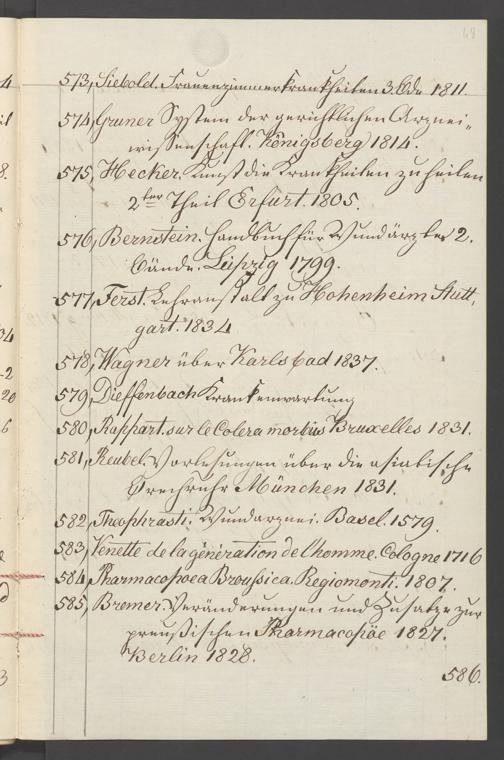 68
573, Siebold. Frauenzimmerkrankheiten 3 Bde 1811.
574, Gruner System der gerichtlichen Arznei-
wissenschaft. Königsberg 1814.
575, Hecker. Kunst die Krankheiten zu heilen
2ter Theil Erfurt. 1805.
576, Bernstein. Handbuch für Wundärzte 2.
Bände. Leipzig 1799.
577, Ferst. Lehranstalt zu Hohenheim Stutt,
gart. 1834
578, Wagner über Karlsbad 1837.
579, Dieffenbach Krankenwartung
580, Rappart. sur le Colera morbus Bruxelles 1831.
581, Reubel. Vorlesungen über die asiatische
Brechruhr München 1831.
582, Theophrasti. Wundarznei. Basel. 1579.
583, Venette de la génération de l'homme. Cologne 1716
584, Pharmacopoea Broussica. Regiomonti. 1807.
585, Bremer. Veränderungen und Zusätze zur
preußischen Pharmacopöe 1827.
Berlin 1828.
586.